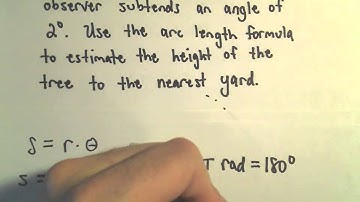 observer subtends an angle of
2°. Use the arc length formula
to estimate the height of the
tree to the nearest yard.
S = r · θ
s = rad = 180°